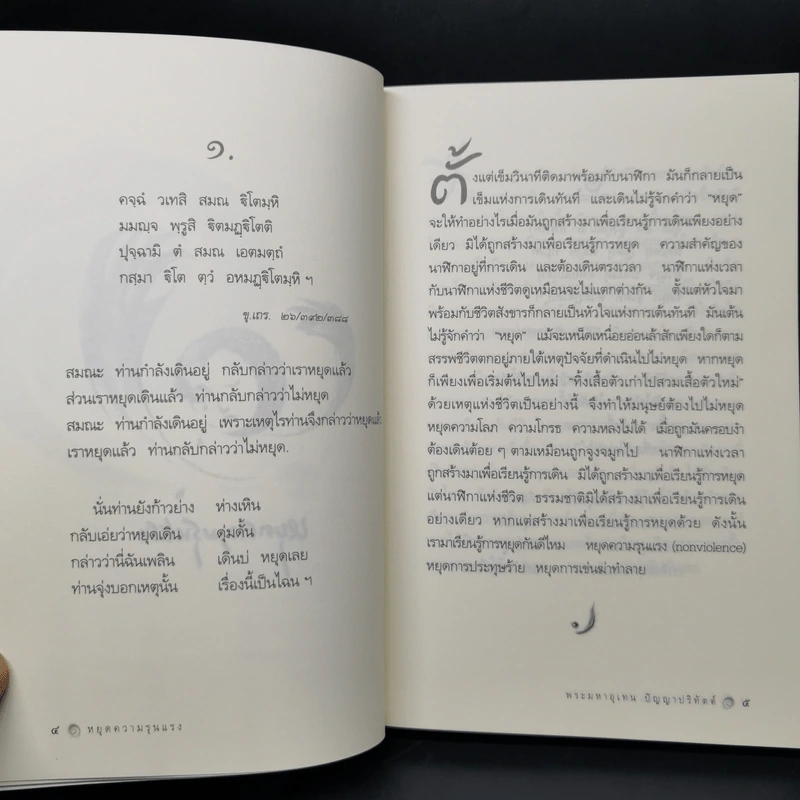 ๑.
คจฺฉํ วเทสิ สมณ ฐิโตมฺหิ
มมญฺจ พฺรูสิ ฐิตมฏฺฐิโตติ
ปุจฺฉามิ ตํ สมณ เอตมตฺถํ
กสฺมา ฐิโต ตฺวํ อหมฏฺฐิโตมฺหิ ฯ
ขุ.เถร. ๒๖/๓๙๒/๓๘๘
สมณะ ท่านกำลังเดินอยู่ กลับกล่าวว่าเราหยุดแล้ว
ส่วนเราหยุดเดินแล้ว ท่านกลับกล่าวว่าไม่หยุด
สมณะ ท่านกำลังเดินอยู่ เพราะเหตุไรท่านจึงกล่าวว่าหยุดแล้ว
เราหยุดแล้ว ท่านกลับกล่าวว่าไม่หยุด.
นั่นท่านยังก้าวย่าง ห่างเหิน
กลับเอ่ยว่าหยุดเดิน ดุ่มดั้น
กล่าวว่านี่ฉันเพลิน เดินบ่ หยุดเลย
ท่านจุ่งบอกเหตุนั้น เรื่องนี้เป็นไฉน ฯ
๔ หยุดความรุนแรง
ตั้งแต่เข็มวินาทีติดมาพร้อมกับนาฬิกา มันก็กลายเป็น
เข็มแห่งการเดินทันที และเดินไม่รู้จักคำว่า "หยุด"
จะให้ทำอย่างไรเมื่อมันถูกสร้างมาเพื่อเรียนรู้การเดินเพียงอย่าง
เดียว มิได้ถูกสร้างมาเพื่อเรียนรู้การหยุด ความสำคัญของ
นาฬิกาอยู่ที่การเดิน และต้องเดินตรงเวลา นาฬิกาแห่งเวลา
กับนาฬิกาแห่งชีวิตดูเหมือนจะไม่แตกต่างกัน ตั้งแต่หัวใจมา
พร้อมกับชีวิตสังขารก็กลายเป็นหัวใจแห่งการเต้นทันที มันเต้น
ไม่รู้จักคำว่า "หยุด" แม้จะเหน็ดเหนื่อยอ่อนล้าสักเพียงใดก็ตาม
สรรพชีวิตตกอยู่ภายใต้เหตุปัจจัยที่ดำเนินไปไม่หยุด หากหยุด
ก็เพียงเพื่อเริ่มต้นไปใหม่ "ทิ้งเสื้อตัวเก่าไปสวมเสื้อตัวใหม่"
ด้วยเหตุแห่งชีวิตเป็นอย่างนี้ จึงทำให้มนุษย์ต้องไปไม่หยุด
หยุดความโลภ ความโกรธ ความหลงไม่ได้ เมื่อถูกมันครอบงำ
ต้องเดินต้อย ๆ ตามเหมือนถูกจูงจมูกไป นาฬิกาแห่งเวลา
ถูกสร้างมาเพื่อเรียนรู้การเดิน มิได้ถูกสร้างมาเพื่อเรียนรู้การหยุด
แต่นาฬิกาแห่งชีวิต ธรรมชาติมิได้สร้างมาเพื่อเรียนรู้การเดิน
อย่างเดียว หากแต่สร้างมาเพื่อเรียนรู้การหยุดด้วย ดังนั้น
เรามาเรียนรู้การหยุดกันดีไหม หยุดความรุนแรง (nonviolence)
หยุดการประทุษร้าย หยุดการเข่นฆ่าทำลาย
พระมหาอุเทน ปัญญาปริทัตต์ ๕